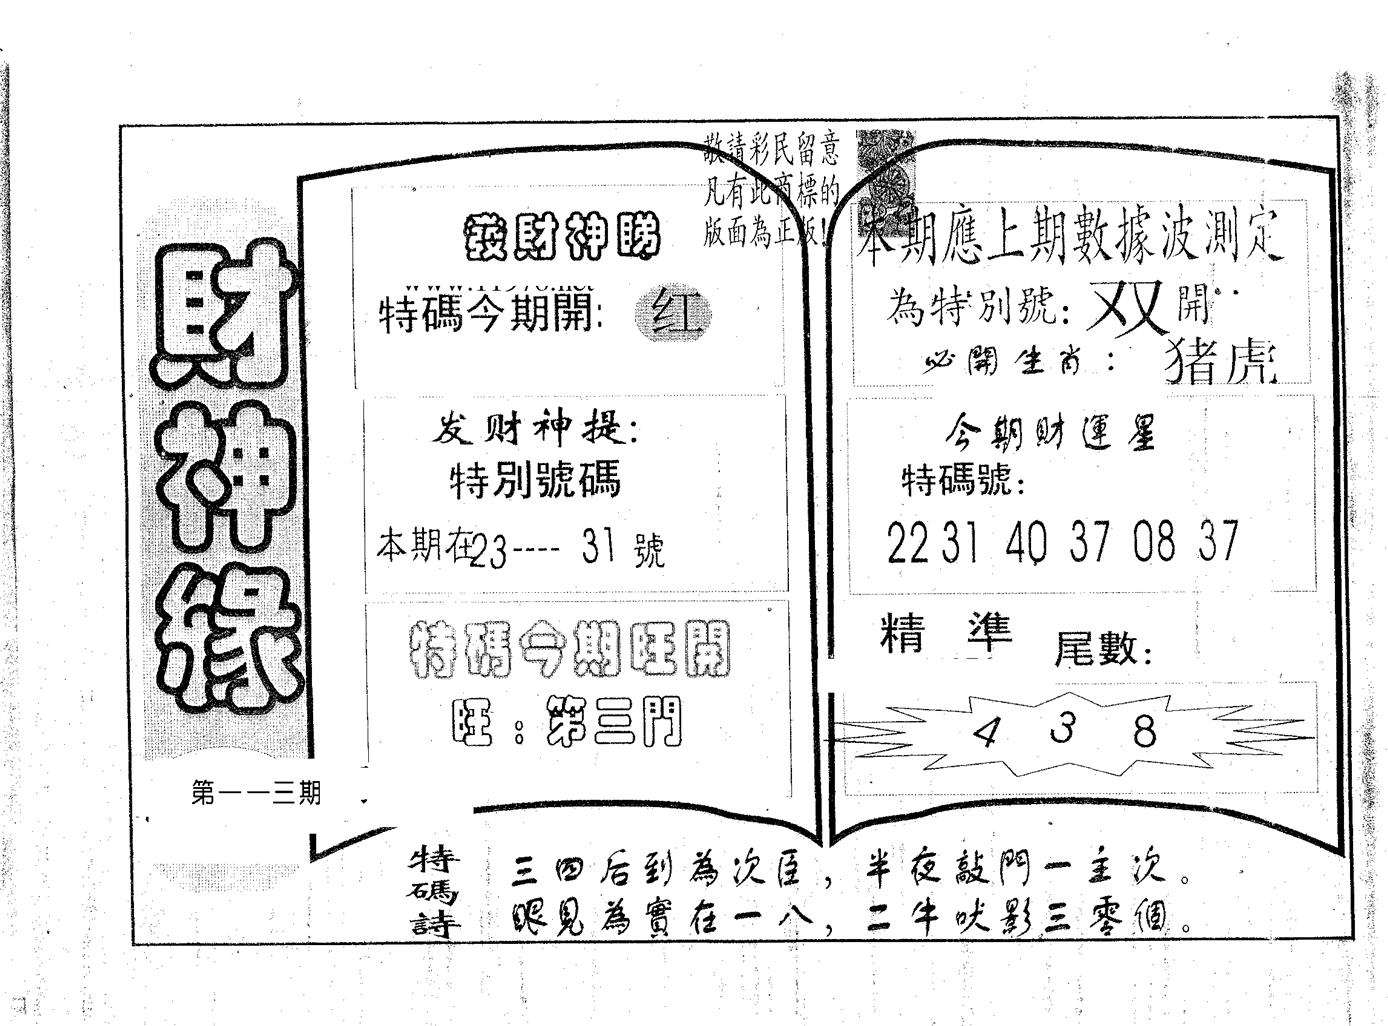 財神緣
第一一三期
敬請彩民留意
凡有此商標的
版面為正版!
發財神賜
特碼今期開: 红
发财神提:
特別號碼
本期在23---- 31 號
特碼今期旺開
旺:第三門
本期應上期數據波測定
為特別號: 双 開
必開生肖: 猪虎
今期財運星
特碼號:
22 31 40 37 08 37
精 準 尾數:
4 3 8
特碼詩
三四后到為次臣,半夜敲門一主次。
眼見為實在一八,二牛吠影三零個。